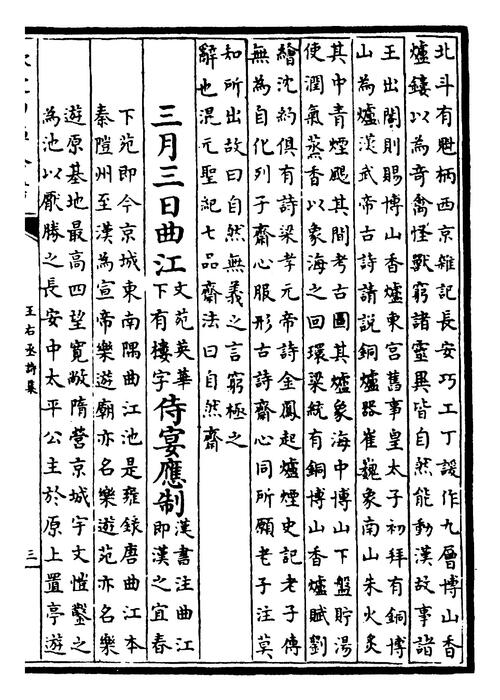 北斗有魁柄西京雜記長安巧工丁諼作九層博山香
爐鏤以為奇禽怪獸窮諸靈異皆自然能動漢故事諸
王出閤則賜博山香爐東宮舊事皇太子初拜有銅博
山為爐漢武帝古詩請說銅爐器崔巍象南山朱火炙
其中青煙颺其間考古圖其爐象海中博山下盤貯湯
使潤氣蒸香以象海之回環梁統有銅博山香爐賦劉
繪沈約俱有詩梁孝元帝詩金鳳起爐煙史記老子傳
無為自化列子齋心服形古詩齋心同所願老子注莫
知所出故曰自然無義之言窮極之
辭也混元聖紀七品齋法曰自然齋
三月三日曲江文苑英華下有樓字侍宴應制漢書注曲江即漢之宜春
下苑即今京城東南隅曲江池是雍錄唐曲江本
秦隑州至漢為宣帝樂遊廟亦名樂遊苑亦名樂
遊原基地最高四望寬敞隋營京城宇文愷鑿之
為池以厭勝之長安中太平公主於原上置亭遊
王右丞詩集
三